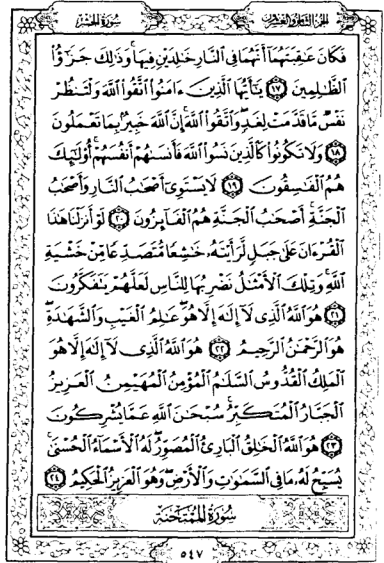 الجزء الثامن والعشرون سورة الحشر
فَكَانَ عَٰقِبَتَهُمَآ أَنَّهُمَا فِى ٱلنَّارِ خَٰلِدَيْنِ فِيهَا ۚ وَذَٰلِكَ جَزَٰٓؤُا۟
ٱلظَّٰلِمِينَ ١٧ يَٰٓأَيُّهَا ٱلَّذِينَ ءَامَنُوا۟ ٱتَّقُوا۟ ٱللَّهَ وَلْتَنظُرْ
نَفْسٌ مَّا قَدَّمَتْ لِغَدٍ ۖ وَٱتَّقُوا۟ ٱللَّهَ ۚ إِنَّ ٱللَّهَ خَبِيرٌۢ بِمَا تَعْمَلُونَ
١٨ وَلَا تَكُونُوا۟ كَٱلَّذِينَ نَسُوا۟ ٱللَّهَ فَأَنسَىٰهُمْ أَنفُسَهُمْ ۚ أُو۟لَٰٓئِكَ
هُمُ ٱلْفَٰسِقُونَ ١٩ لَا يَسْتَوِىٓ أَصْحَٰبُ ٱلنَّارِ وَأَصْحَٰبُ
ٱلْجَنَّةِ ۚ أَصْحَٰبُ ٱلْجَنَّةِ هُمُ ٱلْفَآئِزُونَ ٢٠ لَوْ أَنزَلْنَا هَٰذَا
ٱلْقُرْءَانَ عَلَىٰ جَبَلٍ لَّرَأَيْتَهُۥ خَٰشِعًا مُّتَصَدِّعًا مِّنْ خَشْيَةِ
ٱللَّهِ ۚ وَتِلْكَ ٱلْأَمْثَٰلُ نَضْرِبُهَا لِلنَّاسِ لَعَلَّهُمْ يَتَفَكَّرُونَ
٢١ هُوَ ٱللَّهُ ٱلَّذِى لَآ إِلَٰهَ إِلَّا هُوَ ۖ عَٰلِمُ ٱلْغَيْبِ وَٱلشَّهَٰدَةِ ۖ
هُوَ ٱلرَّحْمَٰنُ ٱلرَّحِيمُ ٢٢ هُوَ ٱللَّهُ ٱلَّذِى لَآ إِلَٰهَ إِلَّا هُوَ
ٱلْمَلِكُ ٱلْقُدُّوسُ ٱلسَّلَٰمُ ٱلْمُؤْمِنُ ٱلْمُهَيْمِنُ ٱلْعَزِيزُ
ٱلْجَبَّارُ ٱلْمُتَكَبِّرُ ۚ سُبْحَٰنَ ٱللَّهِ عَمَّا يُشْرِكُونَ
٢٣ هُوَ ٱللَّهُ ٱلْخَٰلِقُ ٱلْبَارِئُ ٱلْمُصَوِّرُ ۖ لَهُ ٱلْأَسْمَآءُ ٱلْحُسْنَىٰ ۚ
يُسَبِّحُ لَهُۥ مَا فِى ٱلسَّمَٰوَٰتِ وَٱلْأَرْضِ ۖ وَهُوَ ٱلْعَزِيزُ ٱلْحَكِيمُ ٢٤
سورة الممتحنة
٥٤٧